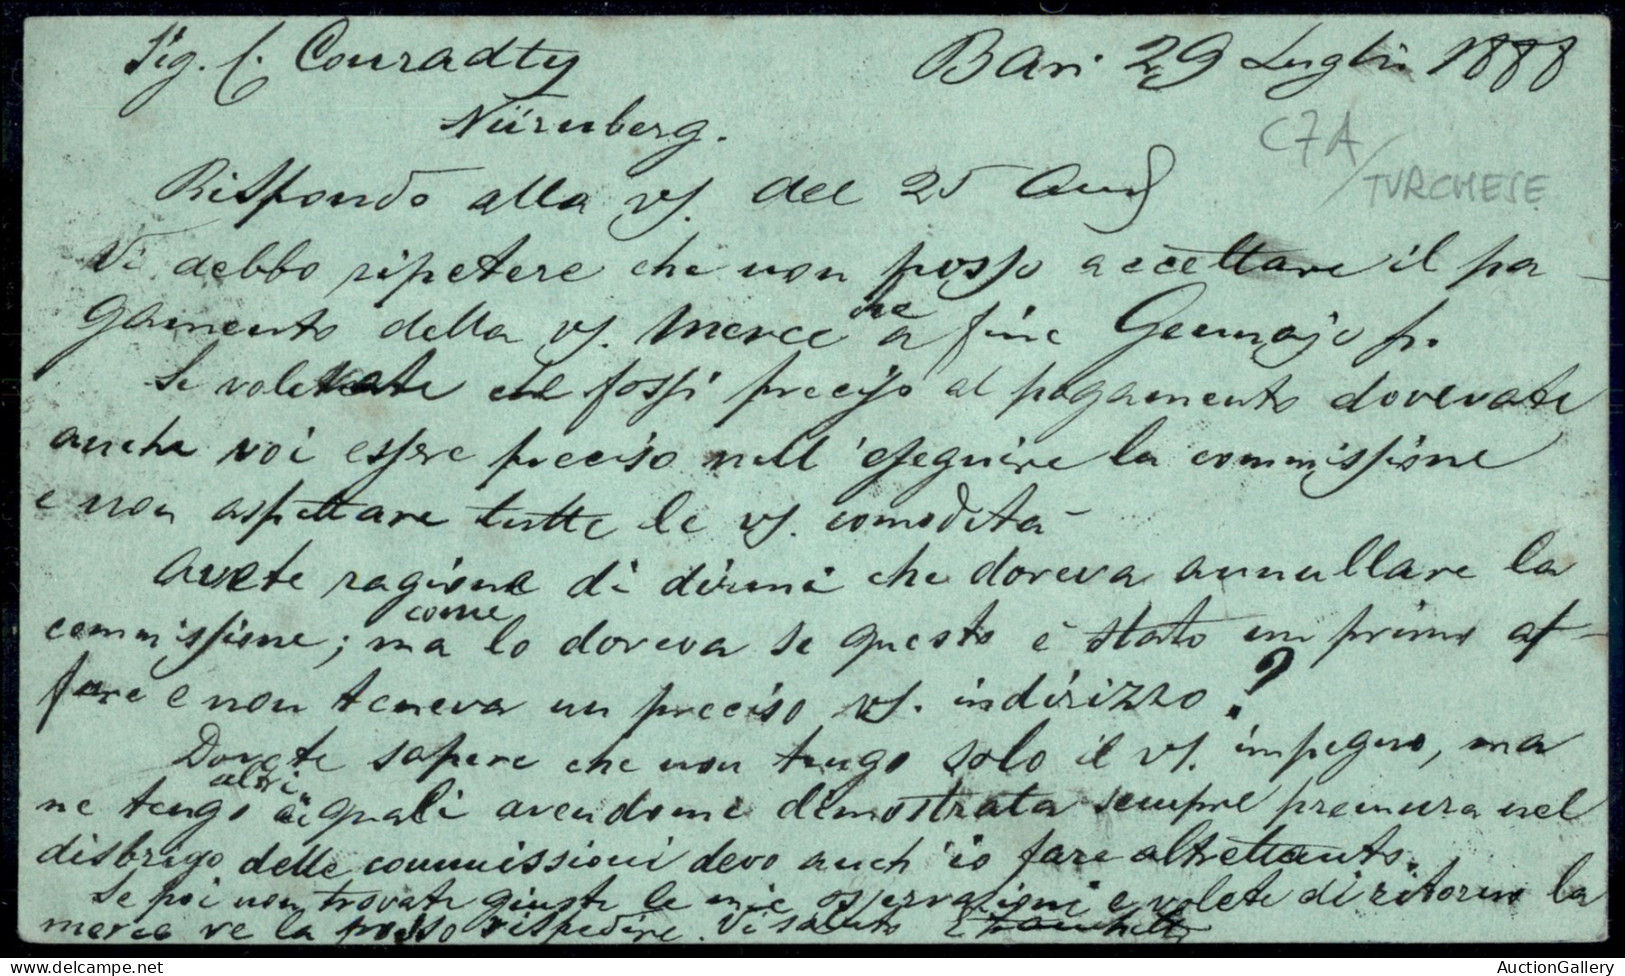 Sig. C. Conradty Bari 29 Luglio 1888
Nürnberg.
C7A/TURCHESE
Rispondo alla vs. del 25 and.
Vi debbo ripetere che non posso accettare il pa-
gamento della vs. merce che a fine Gennajo p.
Se volevate che fossi preciso al pagamento dovevate
anche voi essere preciso nell'eseguire la commissione
e non aspettare tutte le vs. comodità
Avete ragione di dirmi che doveva annullare la
commissione; ma come lo doveva se questo è stato un primo af-
fare e non teneva un preciso vs. indirizzo?
Dovete sapere che non tengo solo il vs. impegno, ma
ne tengo altri ai quali avendomi dimostrata sempre premura nel
disbrigo delle commissioni devo anch'io fare altrettanto.
Se poi non trovate giuste le mie osservazioni e volete di ritorno la
merce ve la posso rispedire. Vi saluto
AuctionGallery